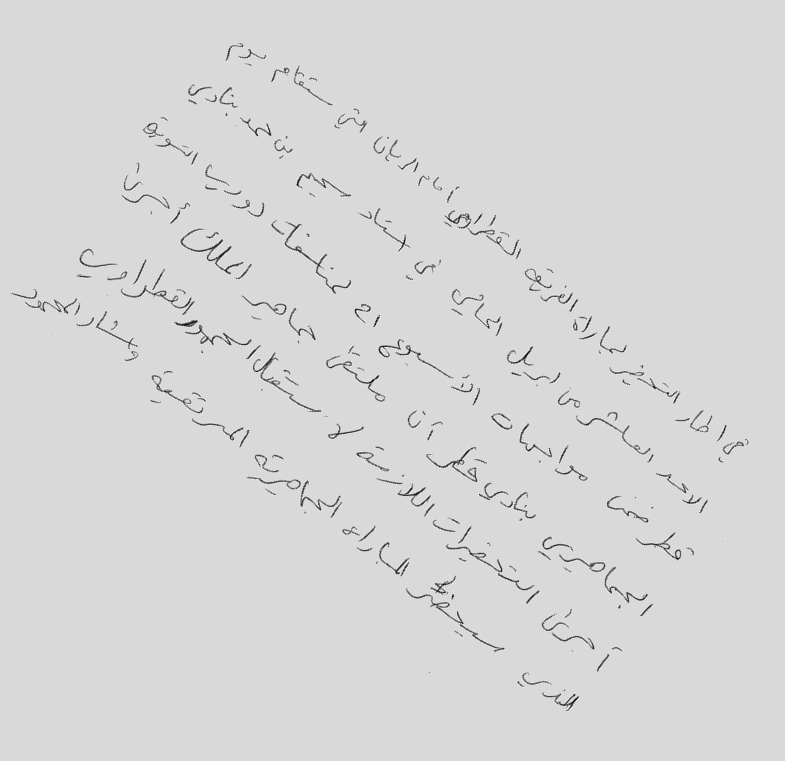 في اطار التحضير لمباراة الفريق القطراوي أمام الريان التي ستقام يوم
الاحد العاشر من ابريل الحالي في استاد سحيم بن حمد بنادي
قطر ضمن مواجهات الأسبوع الـ لمنافسات دوري التسوية
الجماهيري بنادي قطر أن ملتقى جماهير الملك أجرى
أجرى التحضيرات اللازمة لاستقبال الجمهور القطراوي
الذي سيحضر المباراة الجماهيرية المرتقبة وأشار المحمود